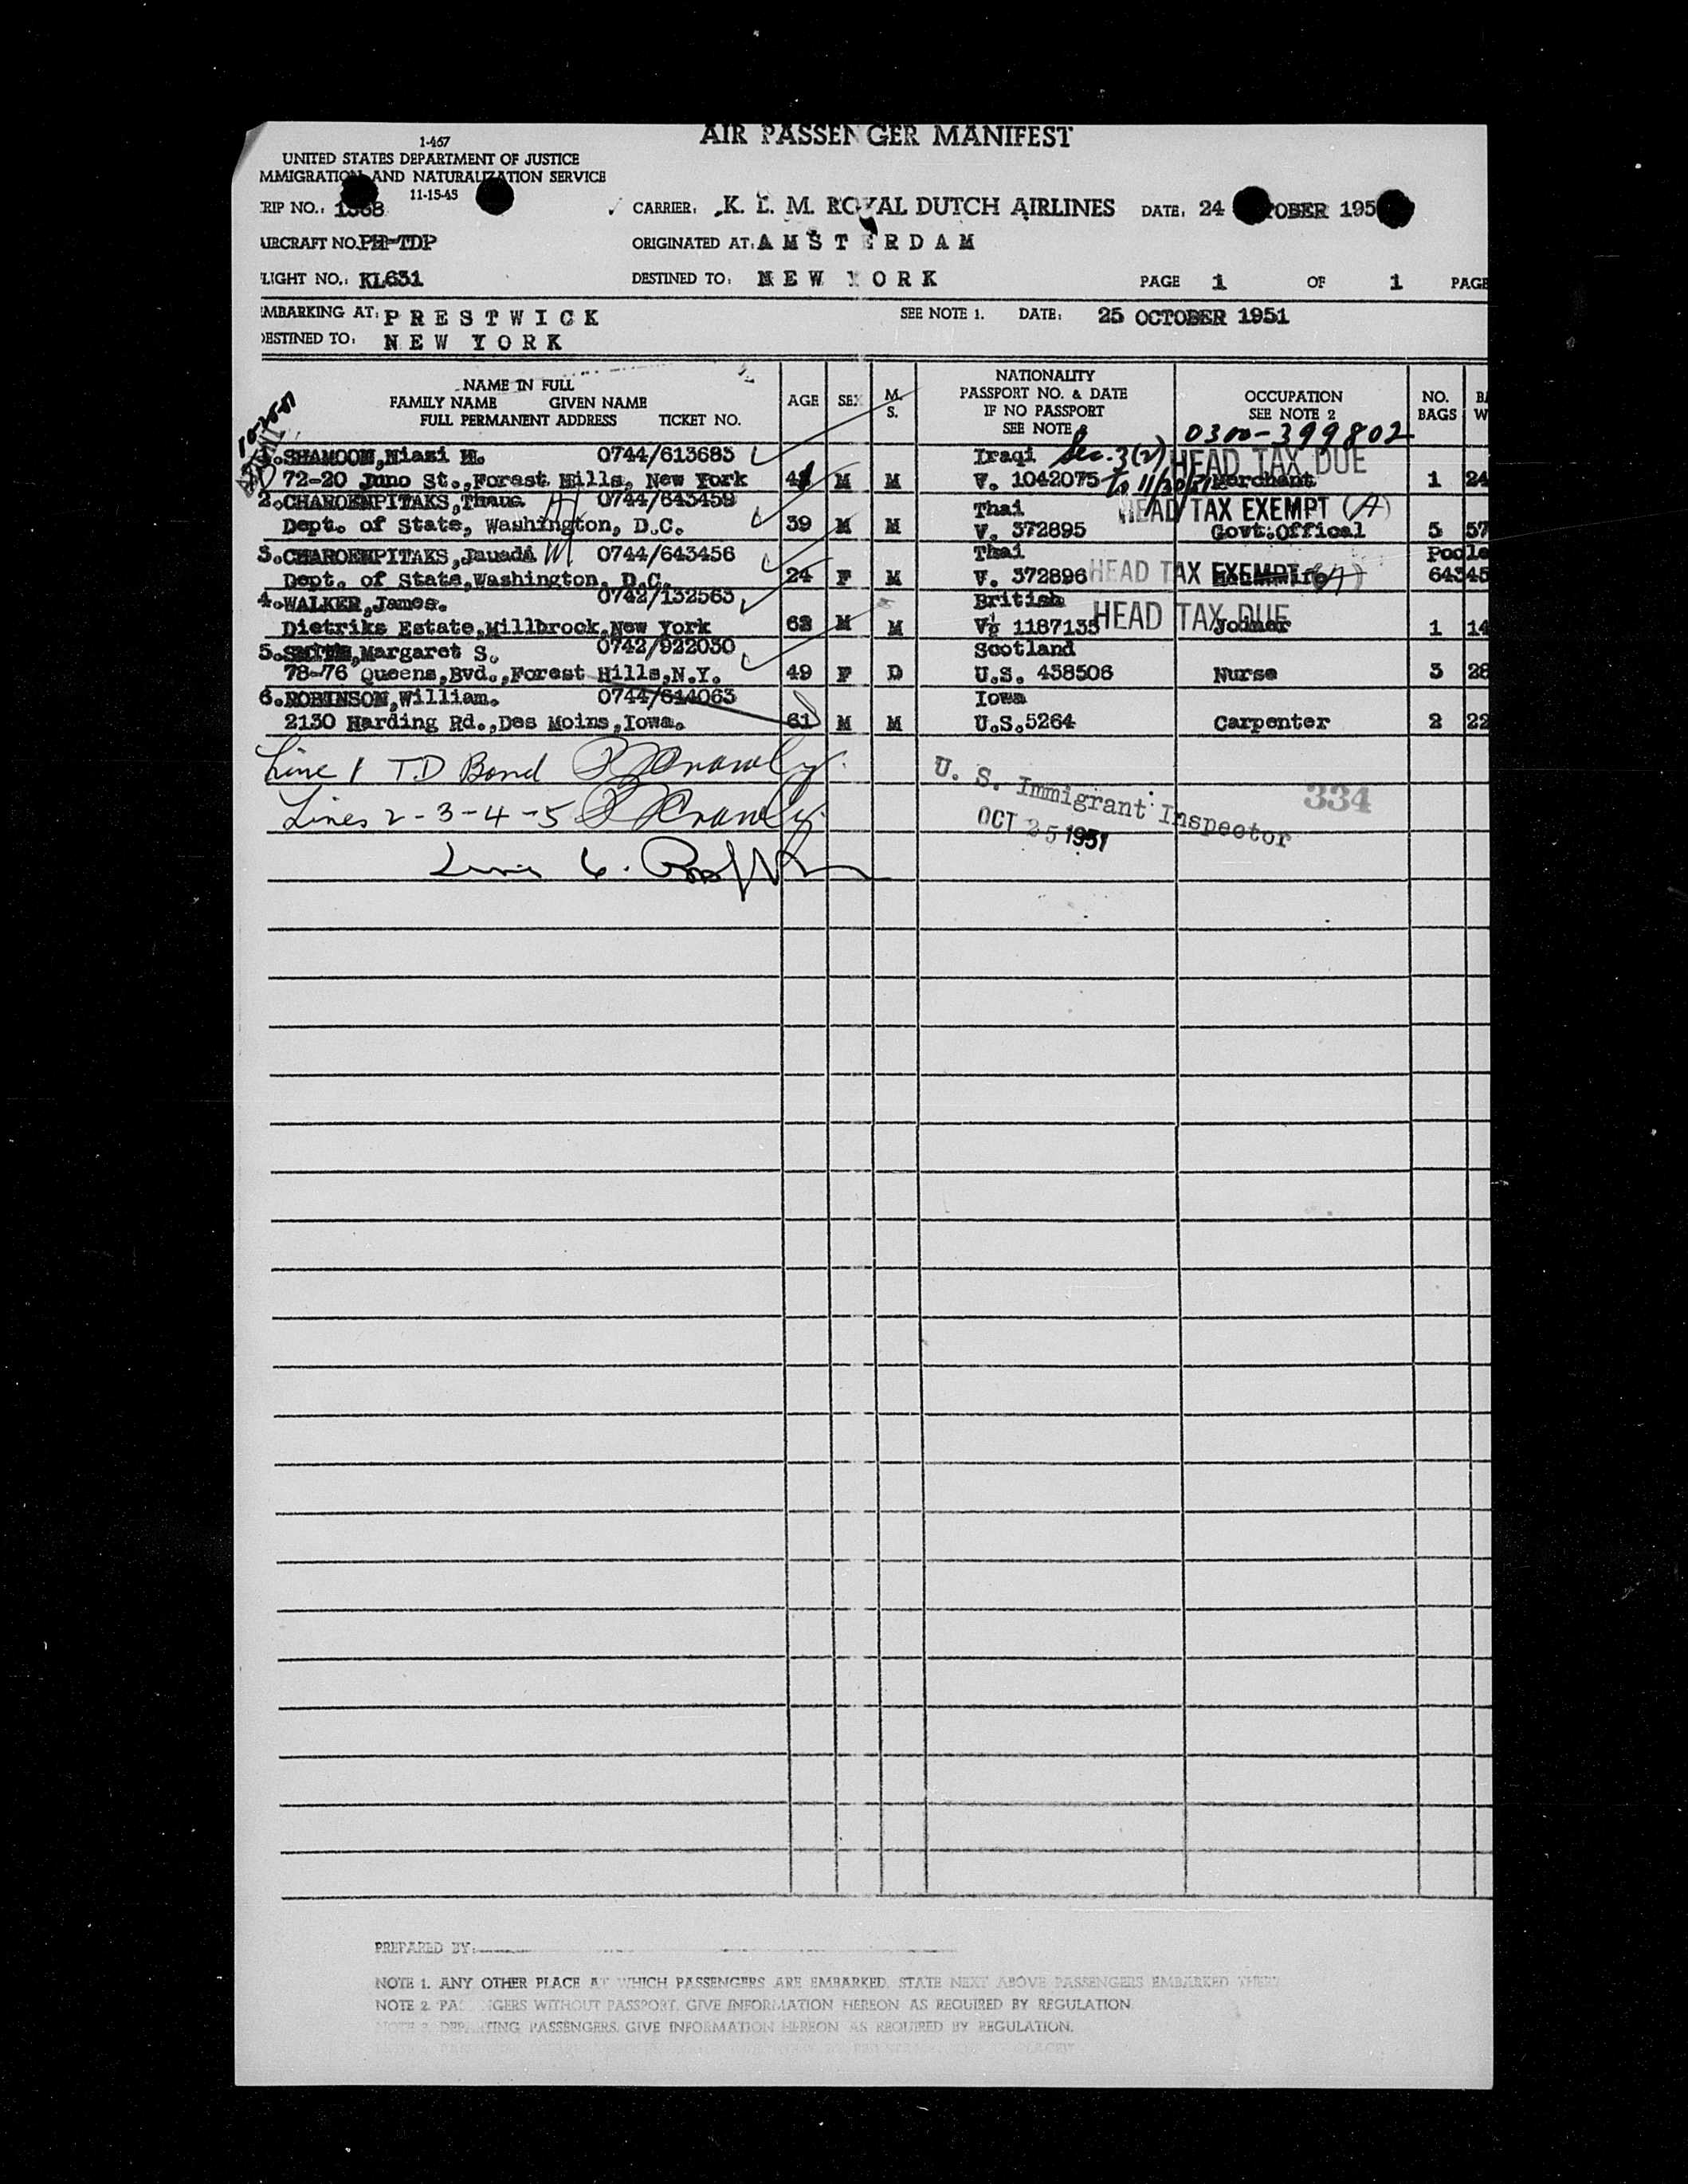 AIR PASSENGER MANIFEST
1-467
UNITED STATES DEPARTMENT OF JUSTICE
MMIGRATION AND NATURALIZATION SERVICE
11-15-45
RIP NO.: 1368 CARRIER: K. L. M. ROYAL DUTCH AIRLINES DATE: 24 OBER 195
IRCRAFT NO. PH-TDP ORIGINATED AT: AMSTERDAM
LIGHT NO.: KL631 DESTINED TO: NEW YORK PAGE 1 OF 1 PAGE
MBARKING AT: PRESTWICK SEE NOTE 1. DATE: 25 OCTOBER 1951
ESTINED TO: NEW YORK
NAME IN FULL
FAMILY NAME GIVEN NAME
FULL PERMANENT ADDRESS TICKET NO.
AGE SEX M. S.
NATIONALITY
PASSPORT NO. & DATE
IF NO PASSPORT
SEE NOTE
OCCUPATION
SEE NOTE 2
NO. BAGS
10-25-51
0300-399802
1. SHAMOON, Niazi M. 0744/613683 Iraqi Sec. 3(2) HEAD TAX DUE
72-20 Juno St., Forest Hills, New York M M V. 1042075 to 11/30/51 Merchant 1 24
2. CHAROENPITAKS, Thaug 0744/643459 Thai HEAD TAX EXEMPT (A)
Dept. of State, Washington, D.C. 39 M M V. 372895 Govt.Offical 5 57
3. CHAROENPITAKS, Jauadi 0744/643456 Thai Poole
Dept. of State, Washington, D.C. 24 F M V. 372896 HEAD TAX EXEMPT (A) 64345
4. WALKER, James. 0742/132563 British
Dietriks Estate, Millbrock, New York 62 M M 1187135 HEAD TAX DUE 1 14
5. SMITH, Margaret S. 0742/922030 Scotland
78-76 Queens, Bvd., Forest Hills, N.Y. 49 F D U.S. 438506 Nurse 3 28
6. ROBINSON, William. 0744/644063 Iowa
2130 Harding Rd., Des Moins, Iowa. 61 M M U.S.5264 Carpenter 2 22
Line 1 T.D Bond
Lines 2-3-4-5
U. S. Immigrant Inspector
334
OCT 25 1951
Line 6.
PREPARED BY:
NOTE 1. ANY OTHER PLACE AT WHICH PASSENGERS ARE EMBARKED, STATE NEXT ABOVE PASSENGERS EMBARKED THERE
NOTE 2. PASSENGERS WITHOUT PASSPORT, GIVE INFORMATION HEREON AS REQUIRED BY REGULATION.
NOTE 3. DEPARTING PASSENGERS, GIVE INFORMATION HEREON AS REQUIRED BY REGULATION.